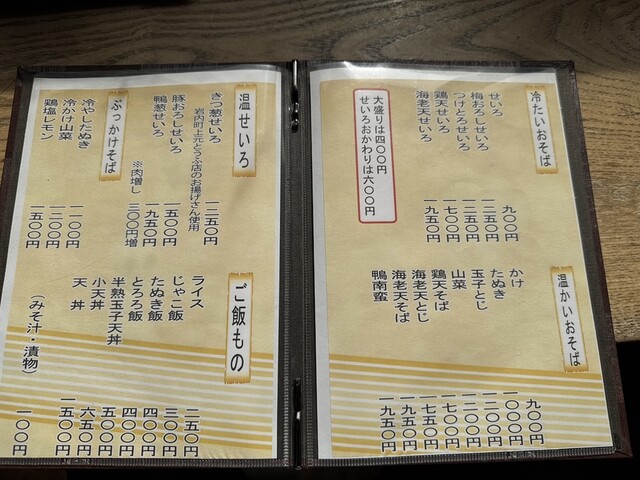 冷たいおそば
せいろ 九〇〇円
梅おろしせいろ 一二五〇円
つけとろせいろ 一二五〇円
鶏天せいろ 一七〇〇円
海老天せいろ 一九五〇円
大盛りは四〇〇円
せいろおかわりは六〇〇円
温かいおそば
かけ 九〇〇円
たぬき 一〇〇〇円
玉子とじ 一二〇〇円
山菜 一二〇〇円
鶏天そば 一七〇〇円
海老天とじ 一七五〇円
海老天そば 一九五〇円
鴨南蛮 一九五〇円
温せいろ
きつ葱せいろ 一二五〇円
岩内町上元とうふ店のお揚げさん使用
豚おろしせいろ 一五〇〇円
鴨葱せいろ 一九五〇円
※肉増し 三〇〇円増
ぶっかけそば
冷やしたぬき 一一〇〇円
冷かけ山菜 一三〇〇円
鶏塩レモン 一五〇〇円
ご飯もの
ライス 二五〇円
じゃこ飯 三〇〇円
たぬき飯 四〇〇円
とろろ飯 四〇〇円
半熟玉子天丼 五〇〇円
小天丼 六五〇円
天丼 一五〇〇円
(みそ汁・漬物) 一〇〇円